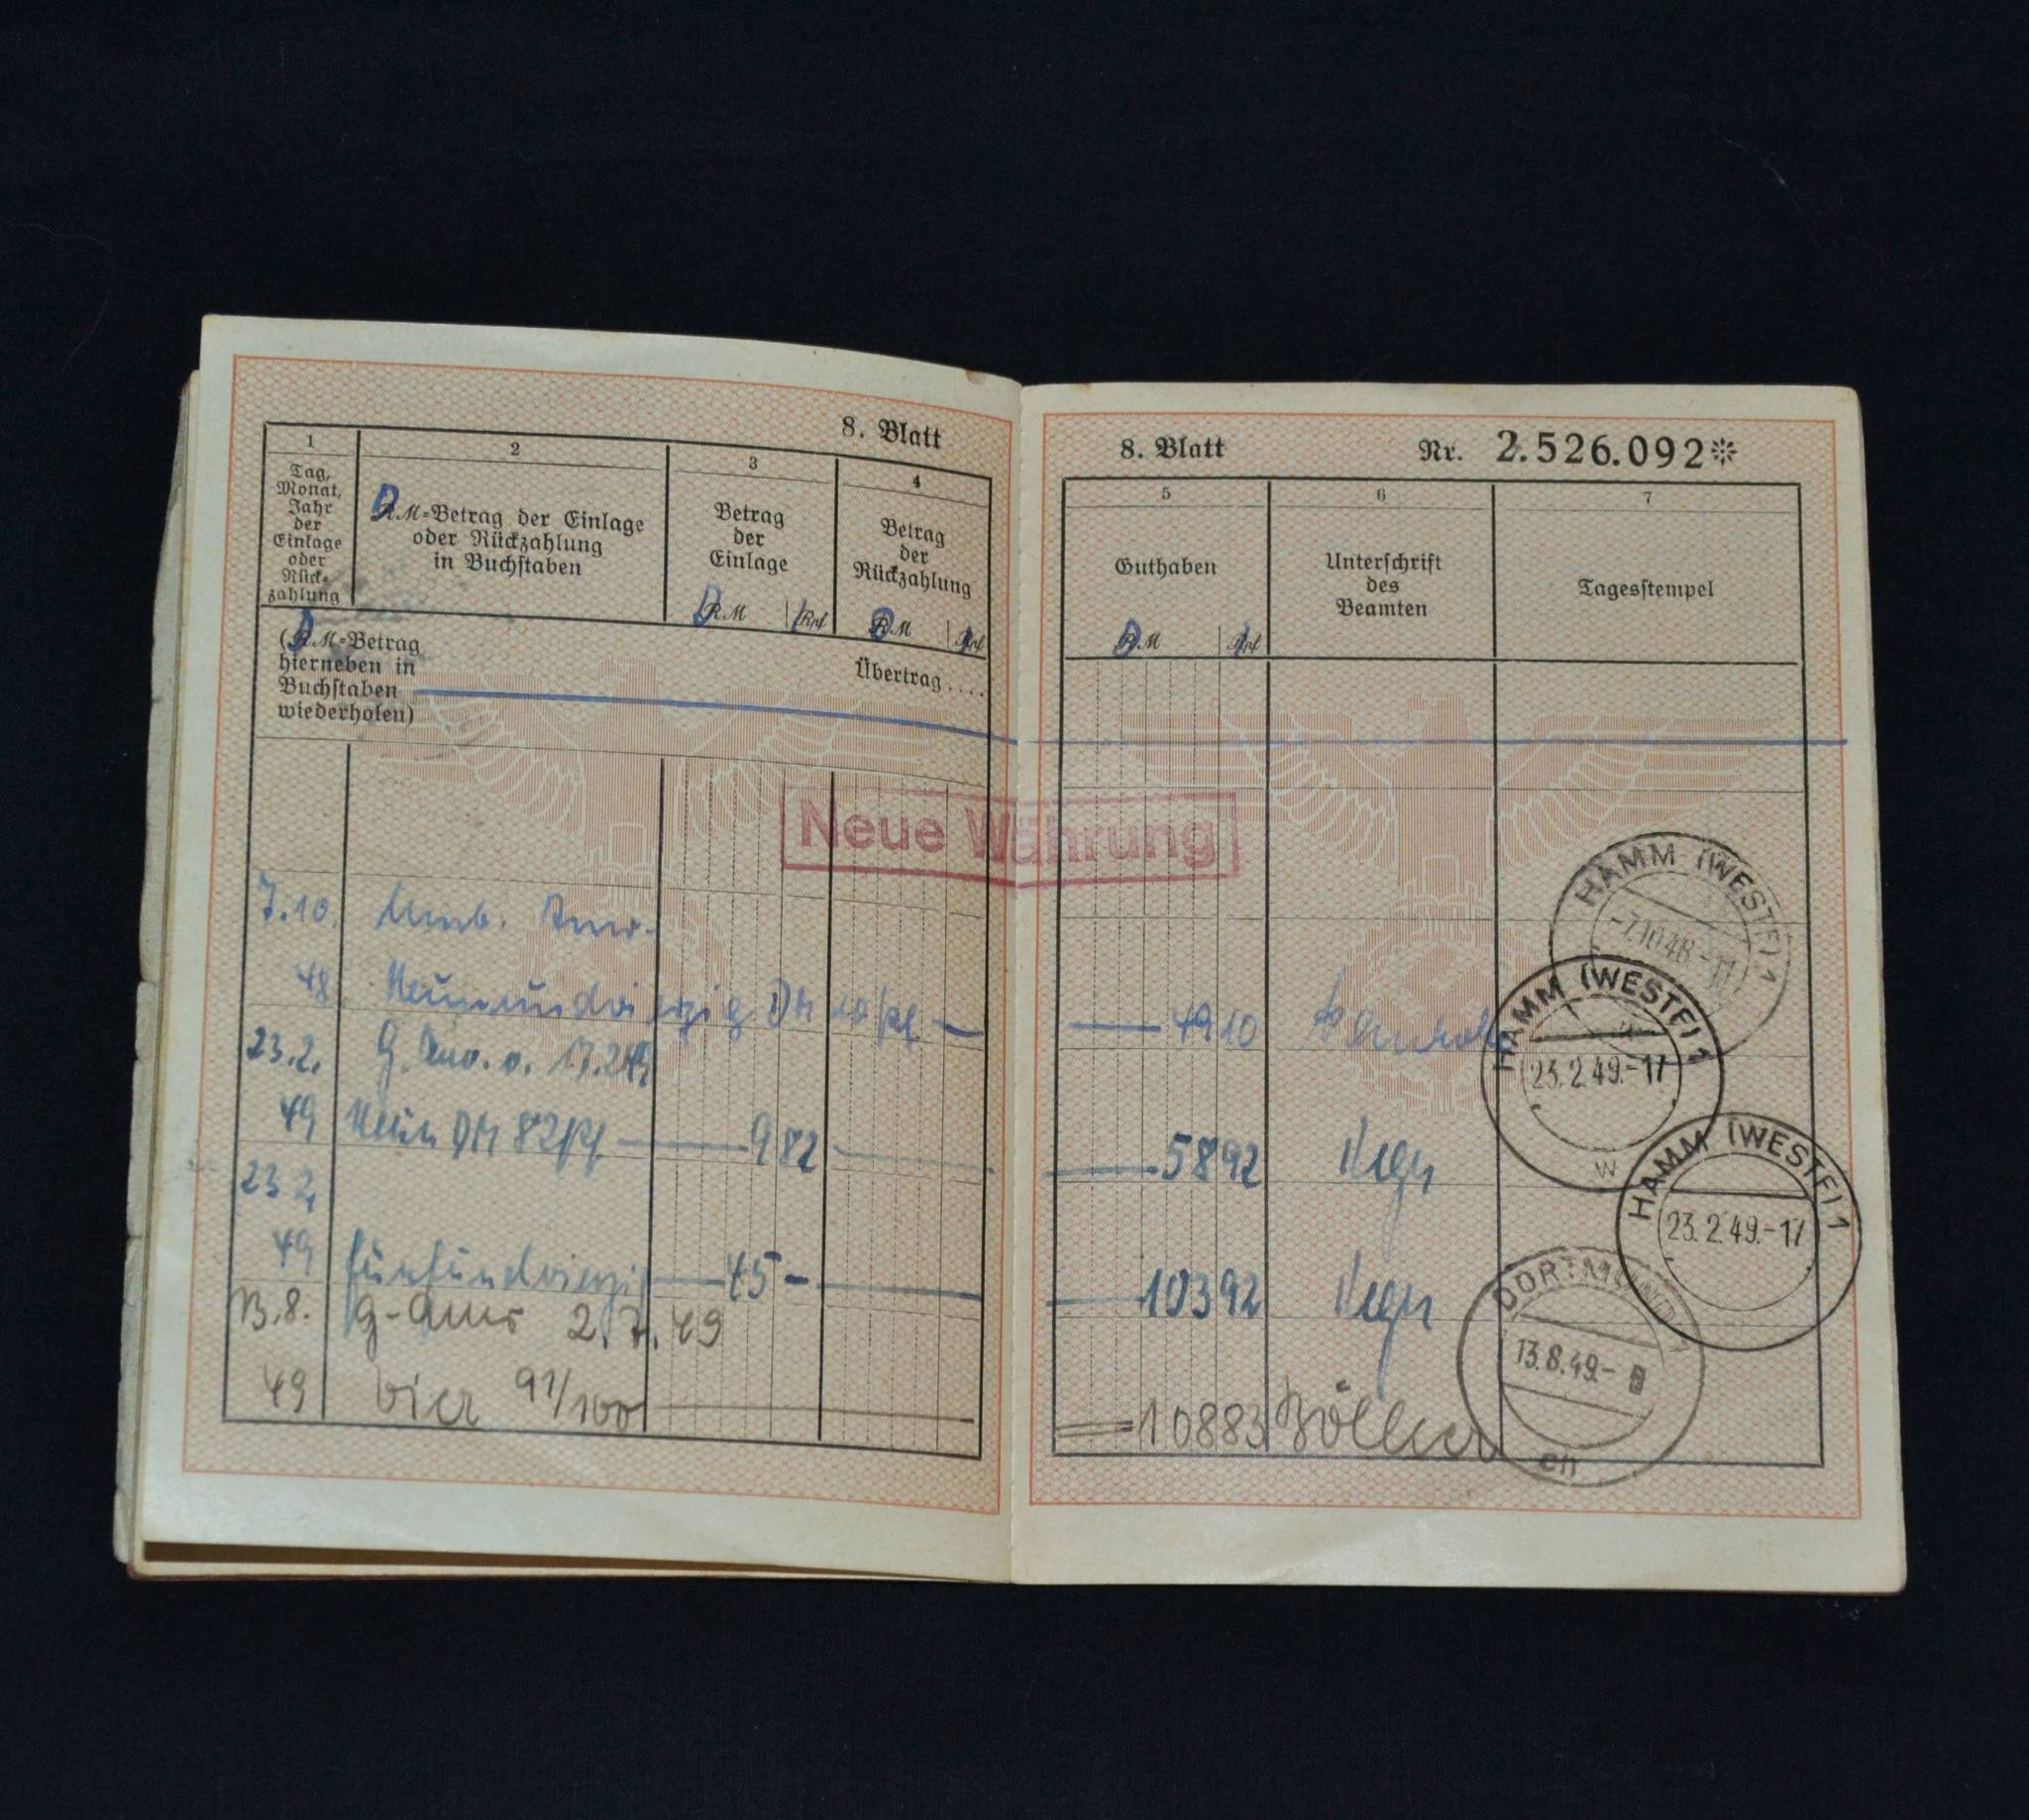 8. Blatt
1
2
3
4
Tag,
Monat,
Jahr
der
Einlage
oder
Rück-
zahlung
DRM-Betrag der Einlage
oder Rückzahlung
in Buchstaben
Betrag
der
Einlage
DRM Rpf
Betrag
der
Rückzahlung
DRM Rpf
(DRM-Betrag
hierneben in
Buchstaben
wiederholen)
Übertrag....
7.10. Umb.
48 Neunundvierzig DM 10 Pf
23.2. G.
49 Neun DM 82 Pf 9 82
23 2
49 fünfundvierzig 45 -
13.8. G- 2.7.49
49 vier 91/100
Neue Währung
8. Blatt Nr. 2.526.092
5
6
7
Guthaben
DRM Rpf
Unterschrift
des
Beamten
Tagesstempel
49 10
58 92
103 92
108 83
HAMM (WESTF) 1
-7.10.48-17
HAMM (WESTF) 1
23.2.49.-17
W
HAMM (WESTF) 1
23.2.49.-17
DORTMUND
13.8.49.-